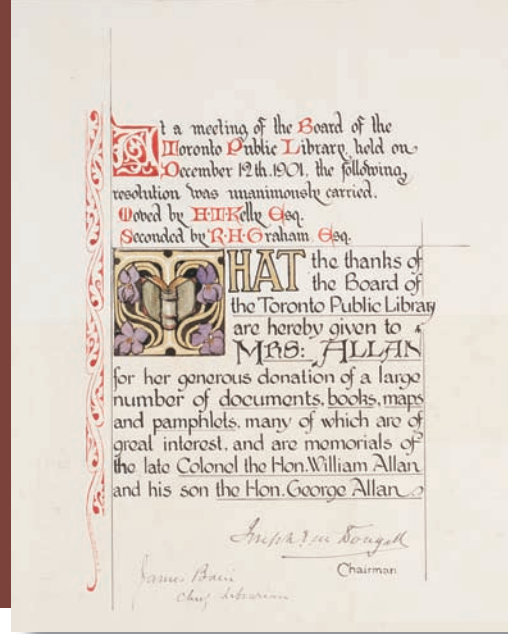 At a meeting of the Board of the
Toronto Public Library, held on
December 12th.1901, the following
resolution was unanimously carried.
Moved by H.T.Kelly Esq.
Seconded by R.H.Graham Esq.
THAT the thanks of
the Board of
the Toronto Public Library
are hereby given to
MRS: ALLAN
for her generous donation of a large
number of documents, books, maps
and pamphlets, many of which are of
great interest, and are memorials of
the late Colonel the Hon. William Allan
and his son the Hon. George Allan
Chairman
James Bain
Chief Librarian